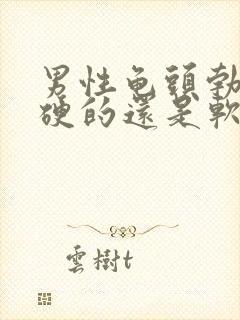 男性龟頭勃
硬的還是軟
雲樹t